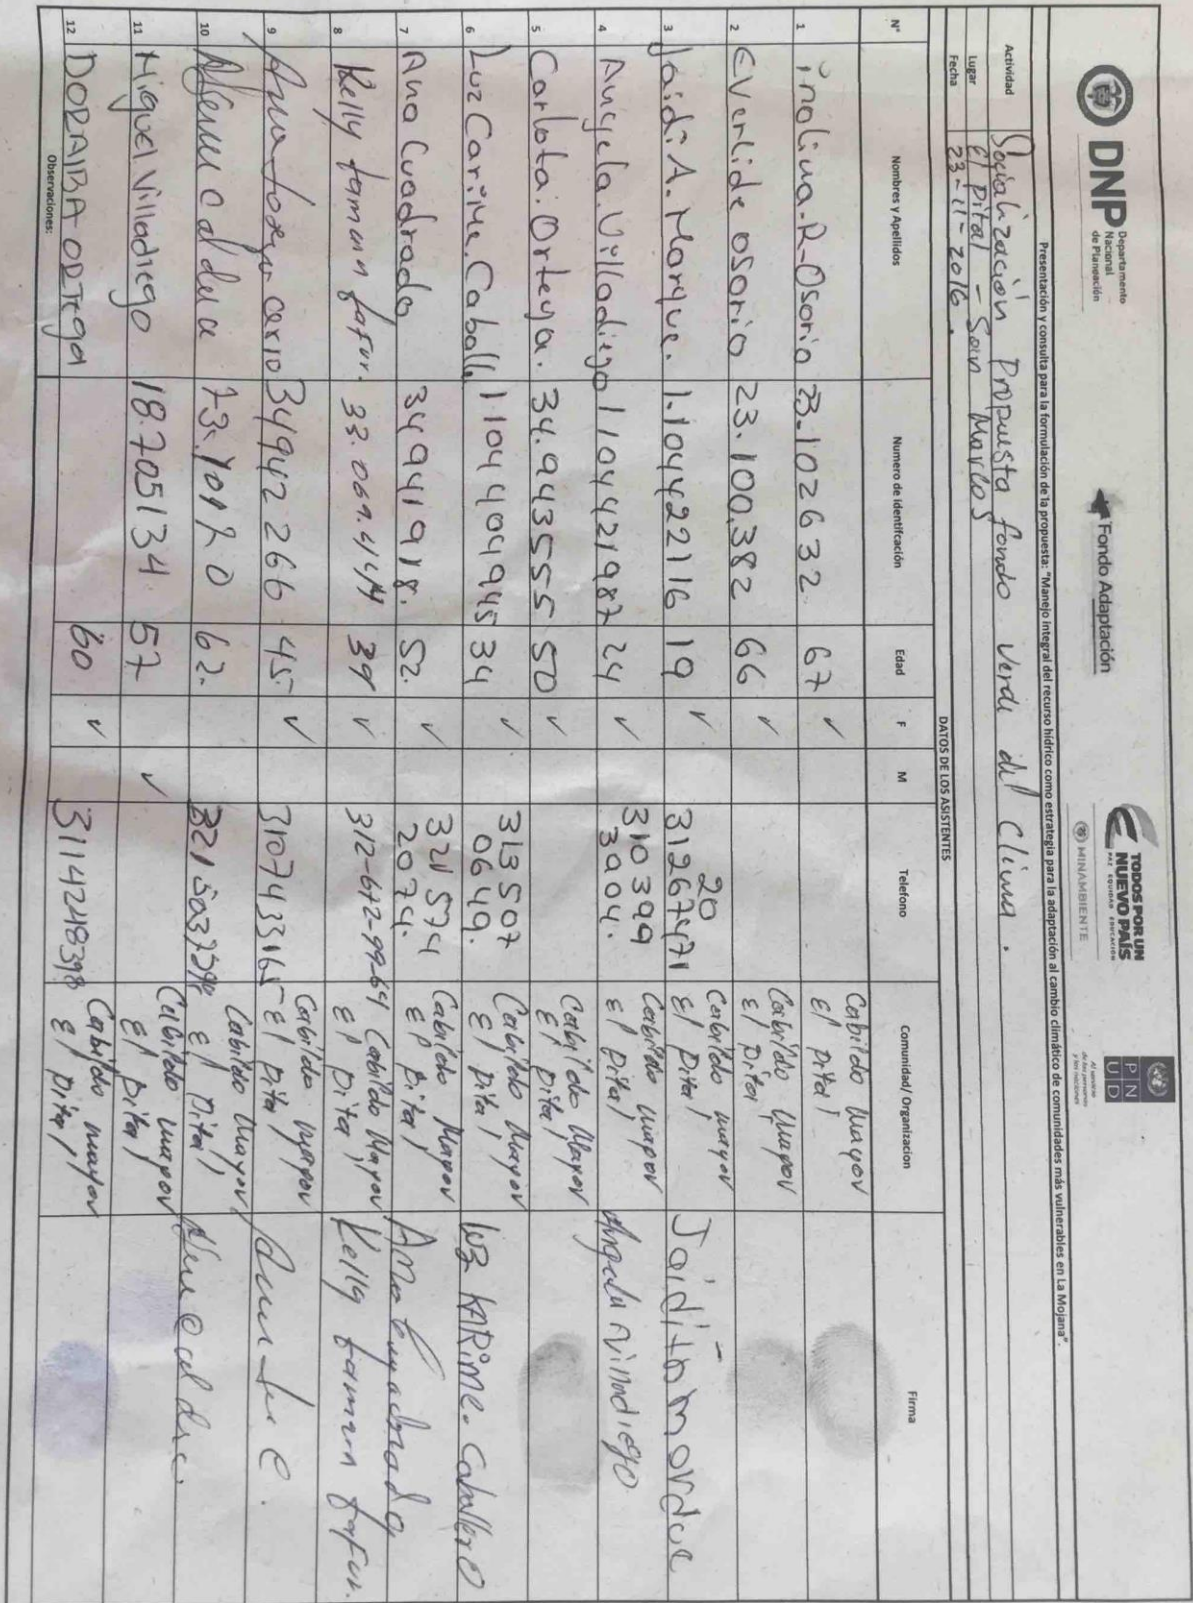 DNP Departamento
Nacional
de Planeación
Fondo Adaptación
TODOS POR UN
NUEVO PAÍS
PAZ EQUIDAD EDUCACIÓN
MINAMBIENTE
PNUD
Al servicio
de las personas
y las naciones
Presentación y consulta para la formulación de la propuesta: "Manejo integral del recurso hídrico como estrategia para la adaptación al cambio climático de comunidades más vulnerables en La Mojana".
Actividad Socialización Propuesta fondo verde del Clima.
Lugar El Pital - San Marcos
Fecha 23-11-2016.
DATOS DE LOS ASISTENTES
N° Nombres y Apellidos Numero de Identifcación Edad F M Telefono Comunidad/ Organizacion Firma
1 inolina.R-Osorio 23.102632 67 ✓ Cabildo Mayor El pital
2 EVerlide osorio 23.100.382 66 ✓ Cabildo Mayor El pital
3 Jaidi A. Marque. 1.104422116 19 ✓ 31267471 20 Cabildo mayor El pital
4 Angela.Villadiego 1104421987 24 ✓ 310 399 3904. Cabildo mayor El pital Angela villadiego
5 Carlota.Ortega. 34.943555 50 ✓ Cabildo Mayor El pital
6 Luz Carime.Caball. 1104404945 34 ✓ 313 507 0649. Cabildo Mayor El pital luz KARIME. Caballero
7 Ana Cuadrado 34941918. 52. ✓ 321 574 2074. Cabildo Mayor El pital Ana Cuadrado
8 Kelly tamara fafur. 33.069.414 39 ✓ 312-672-9964 Cabildo Mayor El pital Kelly tamara fafur.
9 34942266 45 ✓ 3107433165 Cabildo mayor El pital
10 62. Cabildo mayor El pital
11 Miguel Villadiego 18.705134 57 ✓ Cabildo mayor El pital
12 DORAIBA ORTega 60 ✓ 3114248398 Cabildo mayor El pital
Observaciones: